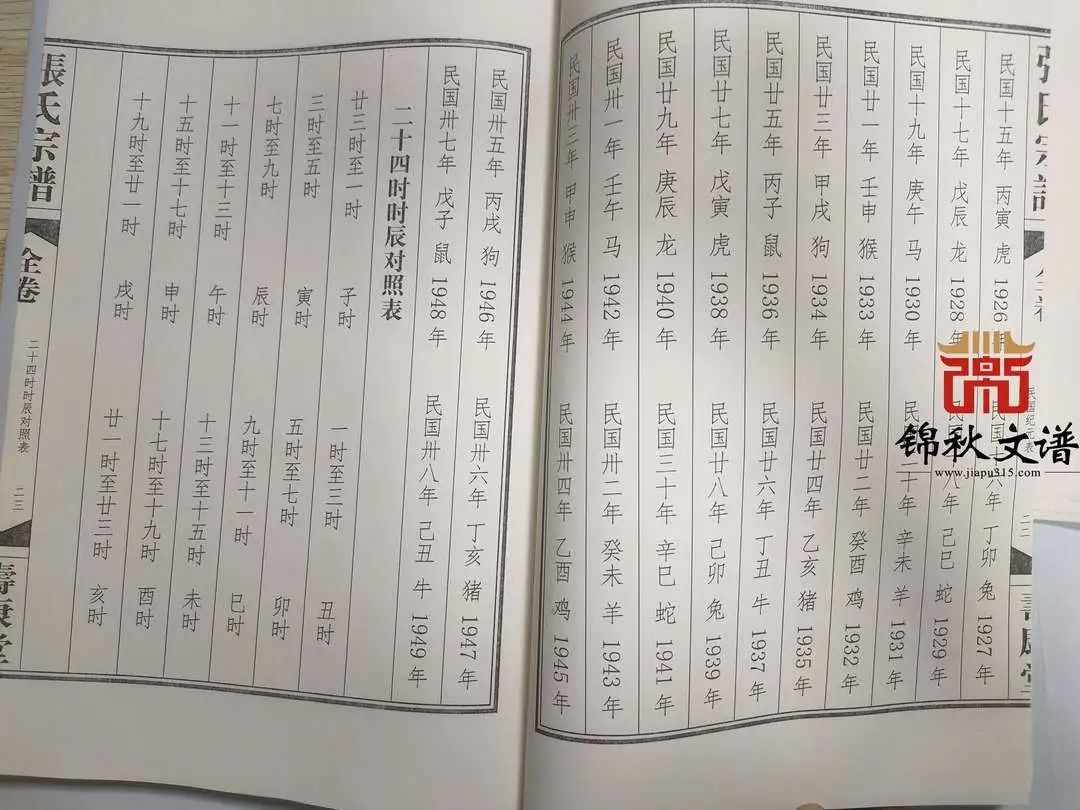 民国纪元表
民国十五年 丙寅 虎 1926年 民国十六年 丁卯 兔 1927年
民国十七年 戊辰 龙 1928年 民 八年 己巳 蛇 1929年
民国十九年 庚午 马 1930年 民 二十年 辛未 羊 1931年
民国廿一年 壬申 猴 1933年 民国廿二年 癸酉 鸡 1932年
民国廿三年 甲戌 狗 1934年 民国廿四年 乙亥 猪 1935年
民国廿五年 丙子 鼠 1936年 民国廿六年 丁丑 牛 1937年
民国廿七年 戊寅 虎 1938年 民国廿八年 己卯 兔 1939年
民国廿九年 庚辰 龙 1940年 民国三十年 辛巳 蛇 1941年
民国卅一年 壬午 马 1942年 民国卅二年 癸未 羊 1943年
民国卅三年 甲申 猴 1944年 民国卅四年 乙酉 鸡 1945年
民国卅五年 丙戌 狗 1946年 民国卅六年 丁亥 猪 1947年
民国卅七年 戊子 鼠 1948年 民国卅八年 己丑 牛 1949年
二十四时时辰对照表
廿三时至一时 子时 一时至三时 丑时
三时至五时 寅时 五时至七时 卯时
七时至九时 辰时 九时至十一时 巳时
十一时至十三时 午时 十三时至十五时 未时
十五时至十七时 申时 十七时至十九时 酉时
十九时至廿一时 戌时 廿一时至廿三时 亥时
張氏宗譜
全卷
二十四时时辰对照表
二三
壽康堂
锦秋文谱
www.jiapu315.com